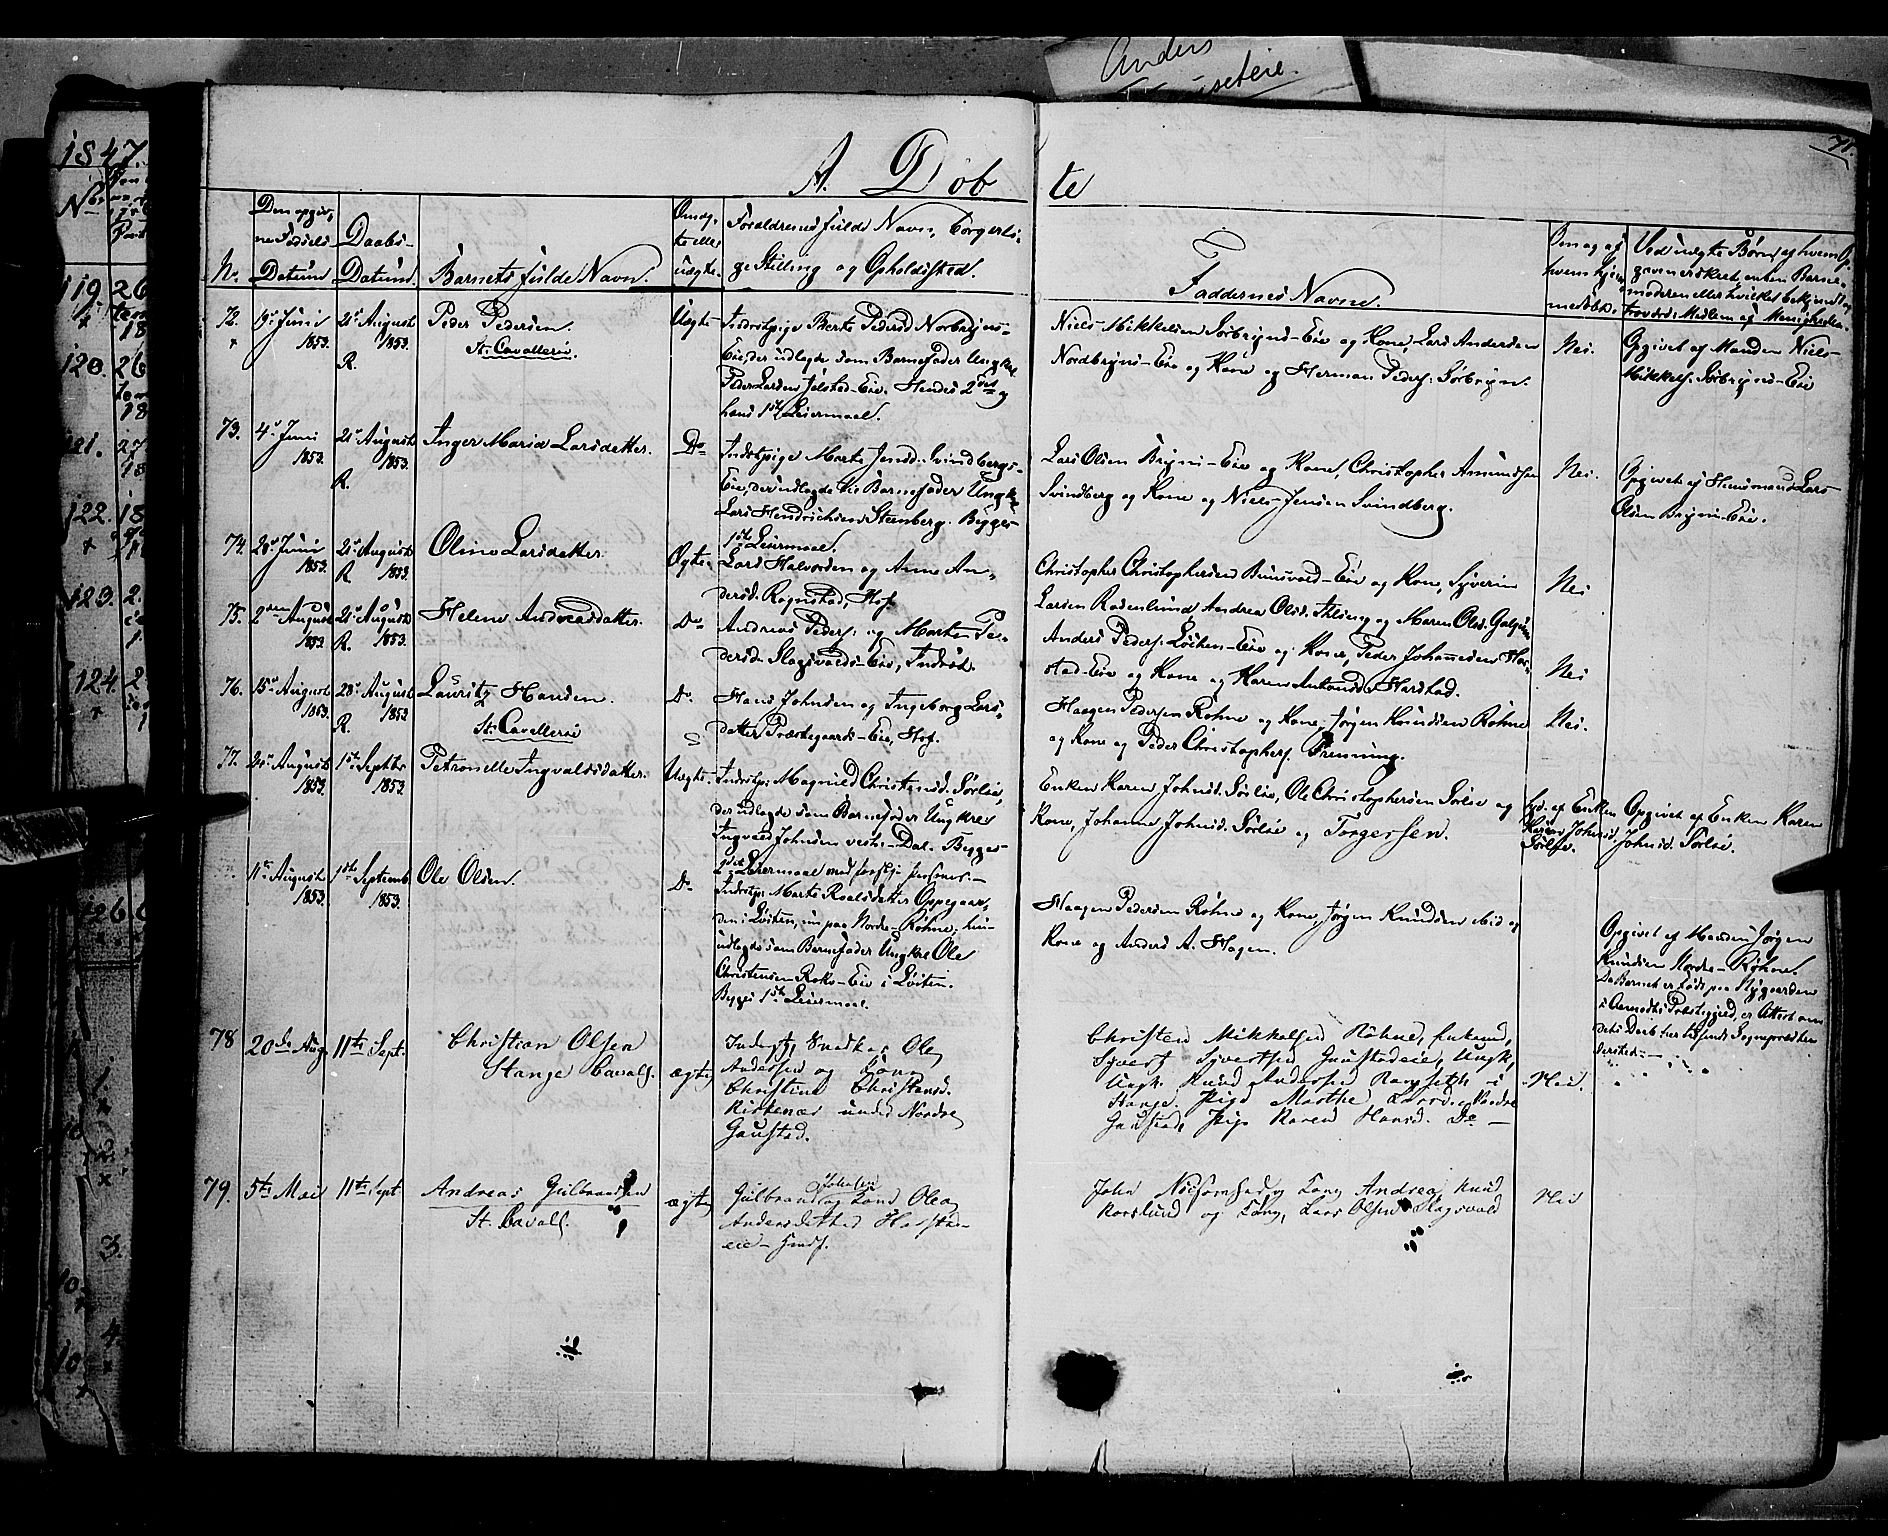 Anders
71.
1847.
No.
119. 26
18
120. 26
18
121. 27
18
122. 18
123. 2.
124. 2
126. 6
A. Døb te
Den opgiv,
ne Fødsels
Datum
Daabs-
Datum.
No.
Barnets fulde Navn.
Om æg,
te eller
uægte.
Forældrenes fulde Navn, Borgerli,
ge Stilling og Opholdssted.
Faddernes Navne.
Om og af
hvem hjem
medøbt.
Ved uægte Børn, af hvem Op
gaven er skeet, enten Barne-
moderen eller hvilket bekjendt og
troværd: Medlem af Menigheden.
72. 9de Junii 1853. 21de August 1853. R.
Peder Pedersen.
St: Cavallerie.
Uægte
Inderstpige Berte Pedersd Norbryns-
Eie, der udlagde som Barnefader Ungkrl
Peder Larsen Jelstad-Eie. Hendes 2det og
hans 1ste Leiermaal.
Niels Mikkelsen Sørbryns-Eie og Kone, Lars Andersen
Nordbryns-Eie og Kone og Herman Peders: Sørbryn.
Nei.
Opgivet af Manden Niels
Mikkels: Sørbryns-Eie
73. 4de Juni 1853. 21de August 1853. R.
Inger Maria Larsdatter.
Do
Inderstpige Marte Jensd: Svindbergs-
Eie, der udlagde til Barnefader Ungkrl
Lars Hendrichsen Steenberg. Begges
1ste Leiermaal.
Lars Olsen Bryni-Eie og Kone, Christopher Amundsen
Svindberg og Kone og Niels Jensen Svindberg.
Nei.
Opgivet af Huusmand Lars
Olsen Bryni-Eie.
74. 28de Junii 1853. 21de August 1853. R
Oline Larsdatter.
Ægte.
Lars Halvorsen og Anne An,
dersd. Rognstad, Hof.
Christopher Christophersen Bunsvold-Eie og Kone, Syverin
Larsen Rosenlund Andrea Olsd. og Maren Olsd.
Nei
75. 2den August 1853 21de August 1853. R.
Helene Andreasdatter.
Do
Andreas Peders: og Marte Pe-
dersd. Slagsvolds-Eie, Inderst.
Anders Peders: Løkens-Eie og Kone, Peder Johannesen Har-
stad-Eie og Kone og Karen Antonsd Harstad.
Nei
76. 15de August 1853. 28de August 1853 R.
Lauritz Hansen.
St: Cavallerie
Do.
Hans Johnsen og Ingeborg Lars,
datter Præstegaards-Eie, Hof.
Haagen Pedersen Røhne og Kone, Jørgen Knudsen Røhne
og Kone og Peder Christophers: Grenning.
Nei.
77. 21de August 1853. 1ste Septbr 1853.
Petronelle Ingvaldsdatter.
Uægte.
Inderstp: Magnild Christensd. Sørlie,
der udlagde som Barnefader Ungkrl
Ingvald Johnsen vestre-Dal. Begges
2det Leiermaal med forskj: Personer.
Enken Karen Johnsd. Sørlie, Ole Christophersen Sørlie og
Kone, Johanne Johnsd. Sørlie og Torgersen.
Hjd. af Enken
Karen Johnsd
Sørlie.
Opgivet af Enken Karen
Johnsd. Sørlie.
11te August 1853. 1ste Septemb 1853.
Ole Olsen.
Do.
Inderstp: Marte Roalsdatter Oppegaar,
den i Løiten, nu paa Nordre-Røhne, hun
udlagde som Barnefader Ungkrl Ole
Christensen Roko-Eie i Løiten.
Begges 1ste Leiermaal.
Haagen Pedersen Røhne og Kone, Jørgen Knudsen ibid og
Kone og Anders A. Hagen.
Opgivet af Manden Jørgen
Knudsen Nordre-Røhne.
Da Barnet er født paa Nygaarden
i Aamodts Præstegjeld, er Attest om
dets Daab her tilsendt Sognepræsten
dersteds.
78 20de Aug 11te Sept.
Christian Olsen
Stange Cavall.
ægte
Inderst, Snedker Ole
Andersen og Kone
Christine Christiansd.
Kirkenær under Nordre
Gaustad.
Christen Mikkelsen Røhne, Enkemd,
Syvert Syvertsen Gaustadeie, Ungk,
Ungk. Knud Andersen Rangseth i
Stange, Pige Marthe Larsd. Nordre
Gaustad, Pige Karen Hansd. Do —
Nei.
79. 5te Mai 11te Sept
Andreas Gulbrandsen
St. Cavall.
ægte
Gulbrand Johnsen og Kone Olea
Andersdatter Harstad-
eie — Huusf.
John og Kone Andrea, Knud
Korslund og Kone, Lars Olsen Slagsvold
Nei